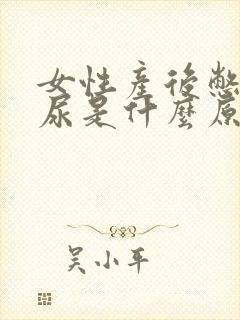 女性產後憋
尿是什麼原
吴小平